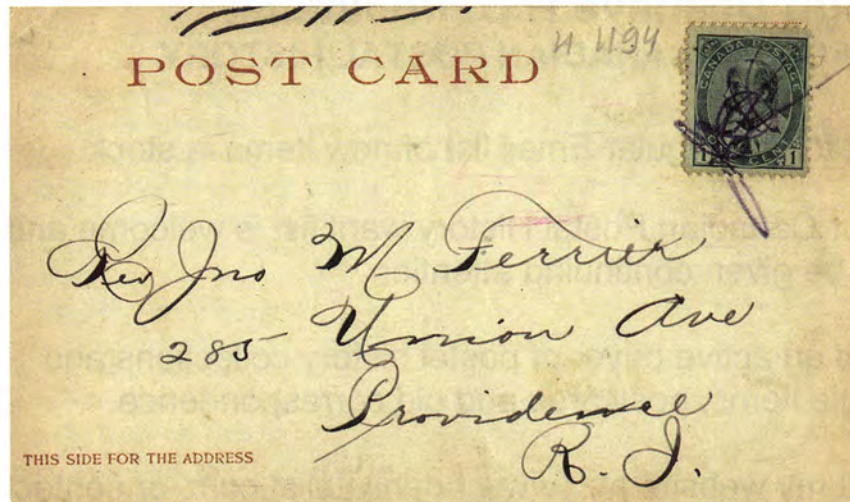 H 1194
POST CARD
CANADA POSTAGE
1 ONE CENT 1
Rev Jno M Ferrier
285 Union Ave
Providence
R. I.
THIS SIDE FOR THE ADDRESS